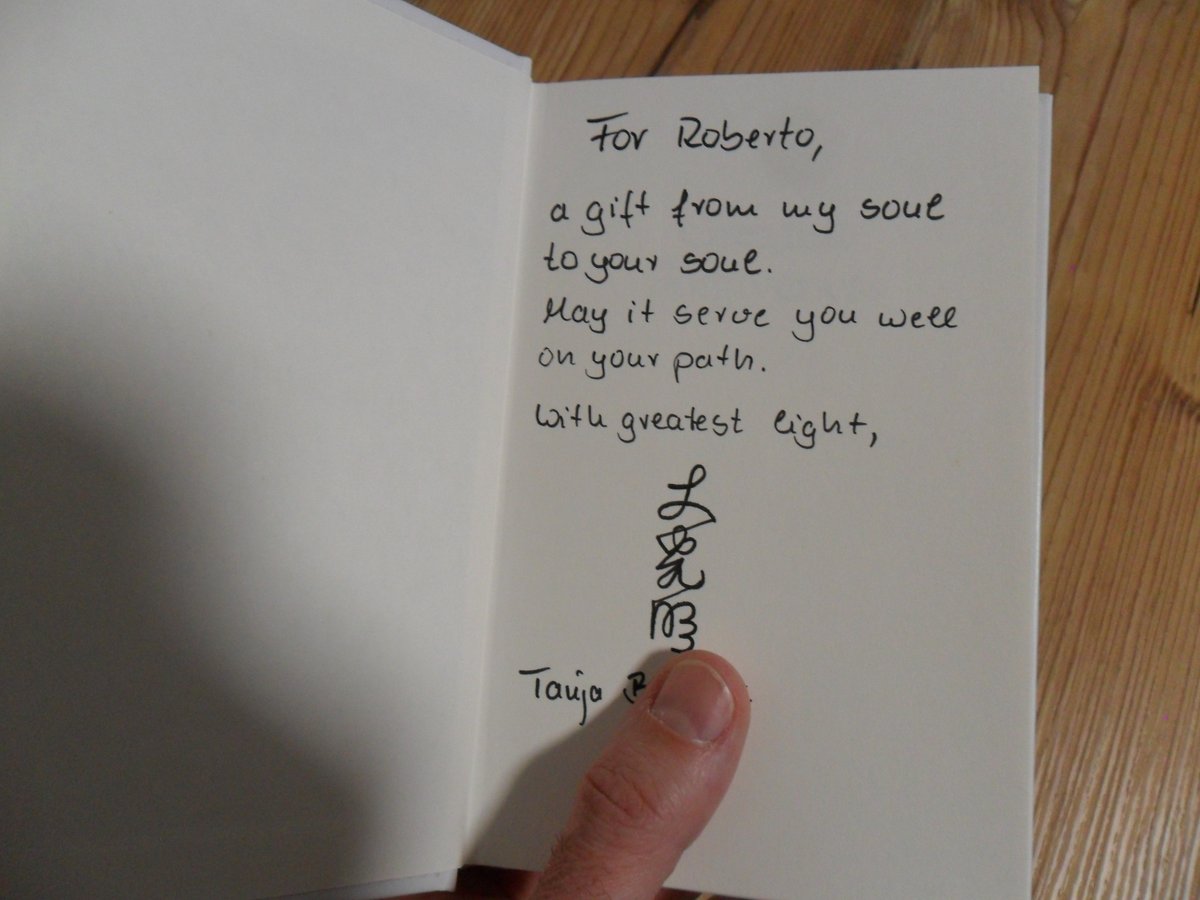 For Roberto,
a gift from my soul
to your soul.
May it serve you well
on your path.
With greatest light,
Tanja